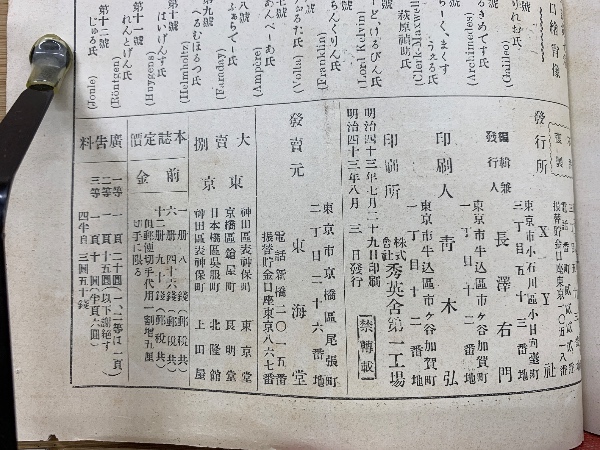 口繪肖像
(Galileo)
るきめです氏
(Archimedes)
らーく、まくす
うぇる氏
(Clerk-Maxwell)
萩原禎助氏
ーど、けるびん氏
(Lord Kelvin)
らんくりん氏
(Franklin)
ゔぉるた氏
(Volta)
七號
あんぺーあ氏
(Ampére)
八號
ふぁらでー氏
(Faraday)
第九號
へるむほるつ氏
(Helmholtz)
第十號
はいげんす氏
(Huyggns)
第十一號
れんとげん氏
(Röntgen)
第十二號
じゅる氏
(Joule)
發行所
XY社
東京市小石川區小日向臺町
三丁目五十三番地
編輯兼
發行人
長澤右門
東京市牛込區市ヶ谷加賀町
一丁目十二番地
印刷人
青木弘
東京市牛込區市ヶ谷加賀町
一丁目十二番地
印刷所
株式會社
秀英舍第一工場
明治四十三年七月二十九日印刷
明治四十三年八月三日發行
禁轉載
發賣元
東京市京橋區尾張町
二丁目二十六番地
東海堂
電話新橋二〇一五番
振替貯金口座東京八六七番
大賣捌
東京
神田區表神保町 東京堂
京橋區鎗屋町 良明堂
日本橋區吳服町 北隆館
神田區表神保町 上田屋
本誌定價
前金
一册 八錢(郵税共)
六册 四十六錢(郵税共)
十二册 九十錢(郵税共)
但郵便切手代用一割增五厘
切手に限る
廣告料
一等 一頁 二十圓(一、二等は一頁
二等 一頁 十五圓(以下謝絶す)
三等 一頁 十圓(半頁六圓)
四半自 三圓五十錢